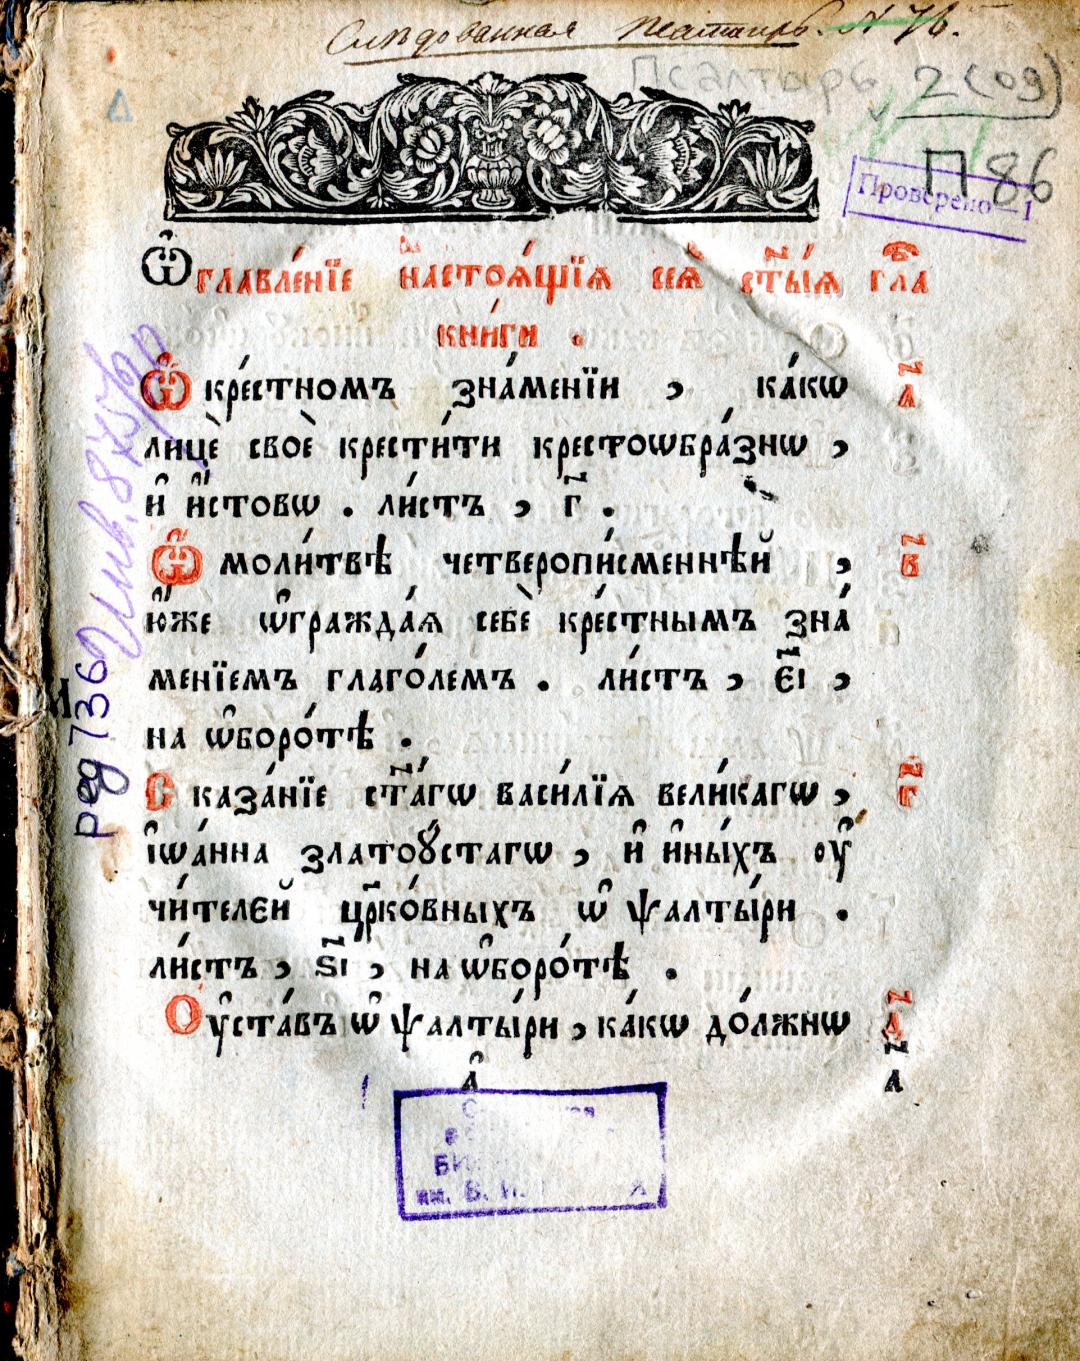 Слѣдованная Псалтирь. N 76.
Псалтырь 2(09)
П 86
Проверено—1
Ѡ҆главле́нїе настоѧ́щїѧ сеѧ̀ ст҃ы́ѧ гла
кни́ги .
Ѽ кре́стномъ зна́менїи , ка́кѡ а҃
лицѐ своѐ крести́ти крестоѡбра́знѡ ,
и҆ и҆́стовѡ . ли́стъ , г҃ .
Ѽ моли́твѣ четверопи́сменнѣй , в҃
ю҆́же ѡ҆гражда́ѧ себѐ кре́стнымъ зна́
менїемъ глаго́лемъ . ли́стъ , є҃і ,
на ѡ҆боро́тѣ .
Сказа́нїе ст҃а́гѡ васи́лїѧ вели́кагѡ , г҃
і҆ѡа́нна златоꙋ́стагѡ , и҆ и҆ны́хъ оу҆
чи́телєй цр҃ко́вныхъ ѡ҆ ѱалты́ри .
ли́стъ , ѕ҃і , на ѡ҆боро́тѣ .
Оу҆ста́въ ѡ҆ ѱалты́ри , ка́кѡ до́лжнѡ д҃
а҆ а҃
Инв. 8
ред 736
им. В. И.